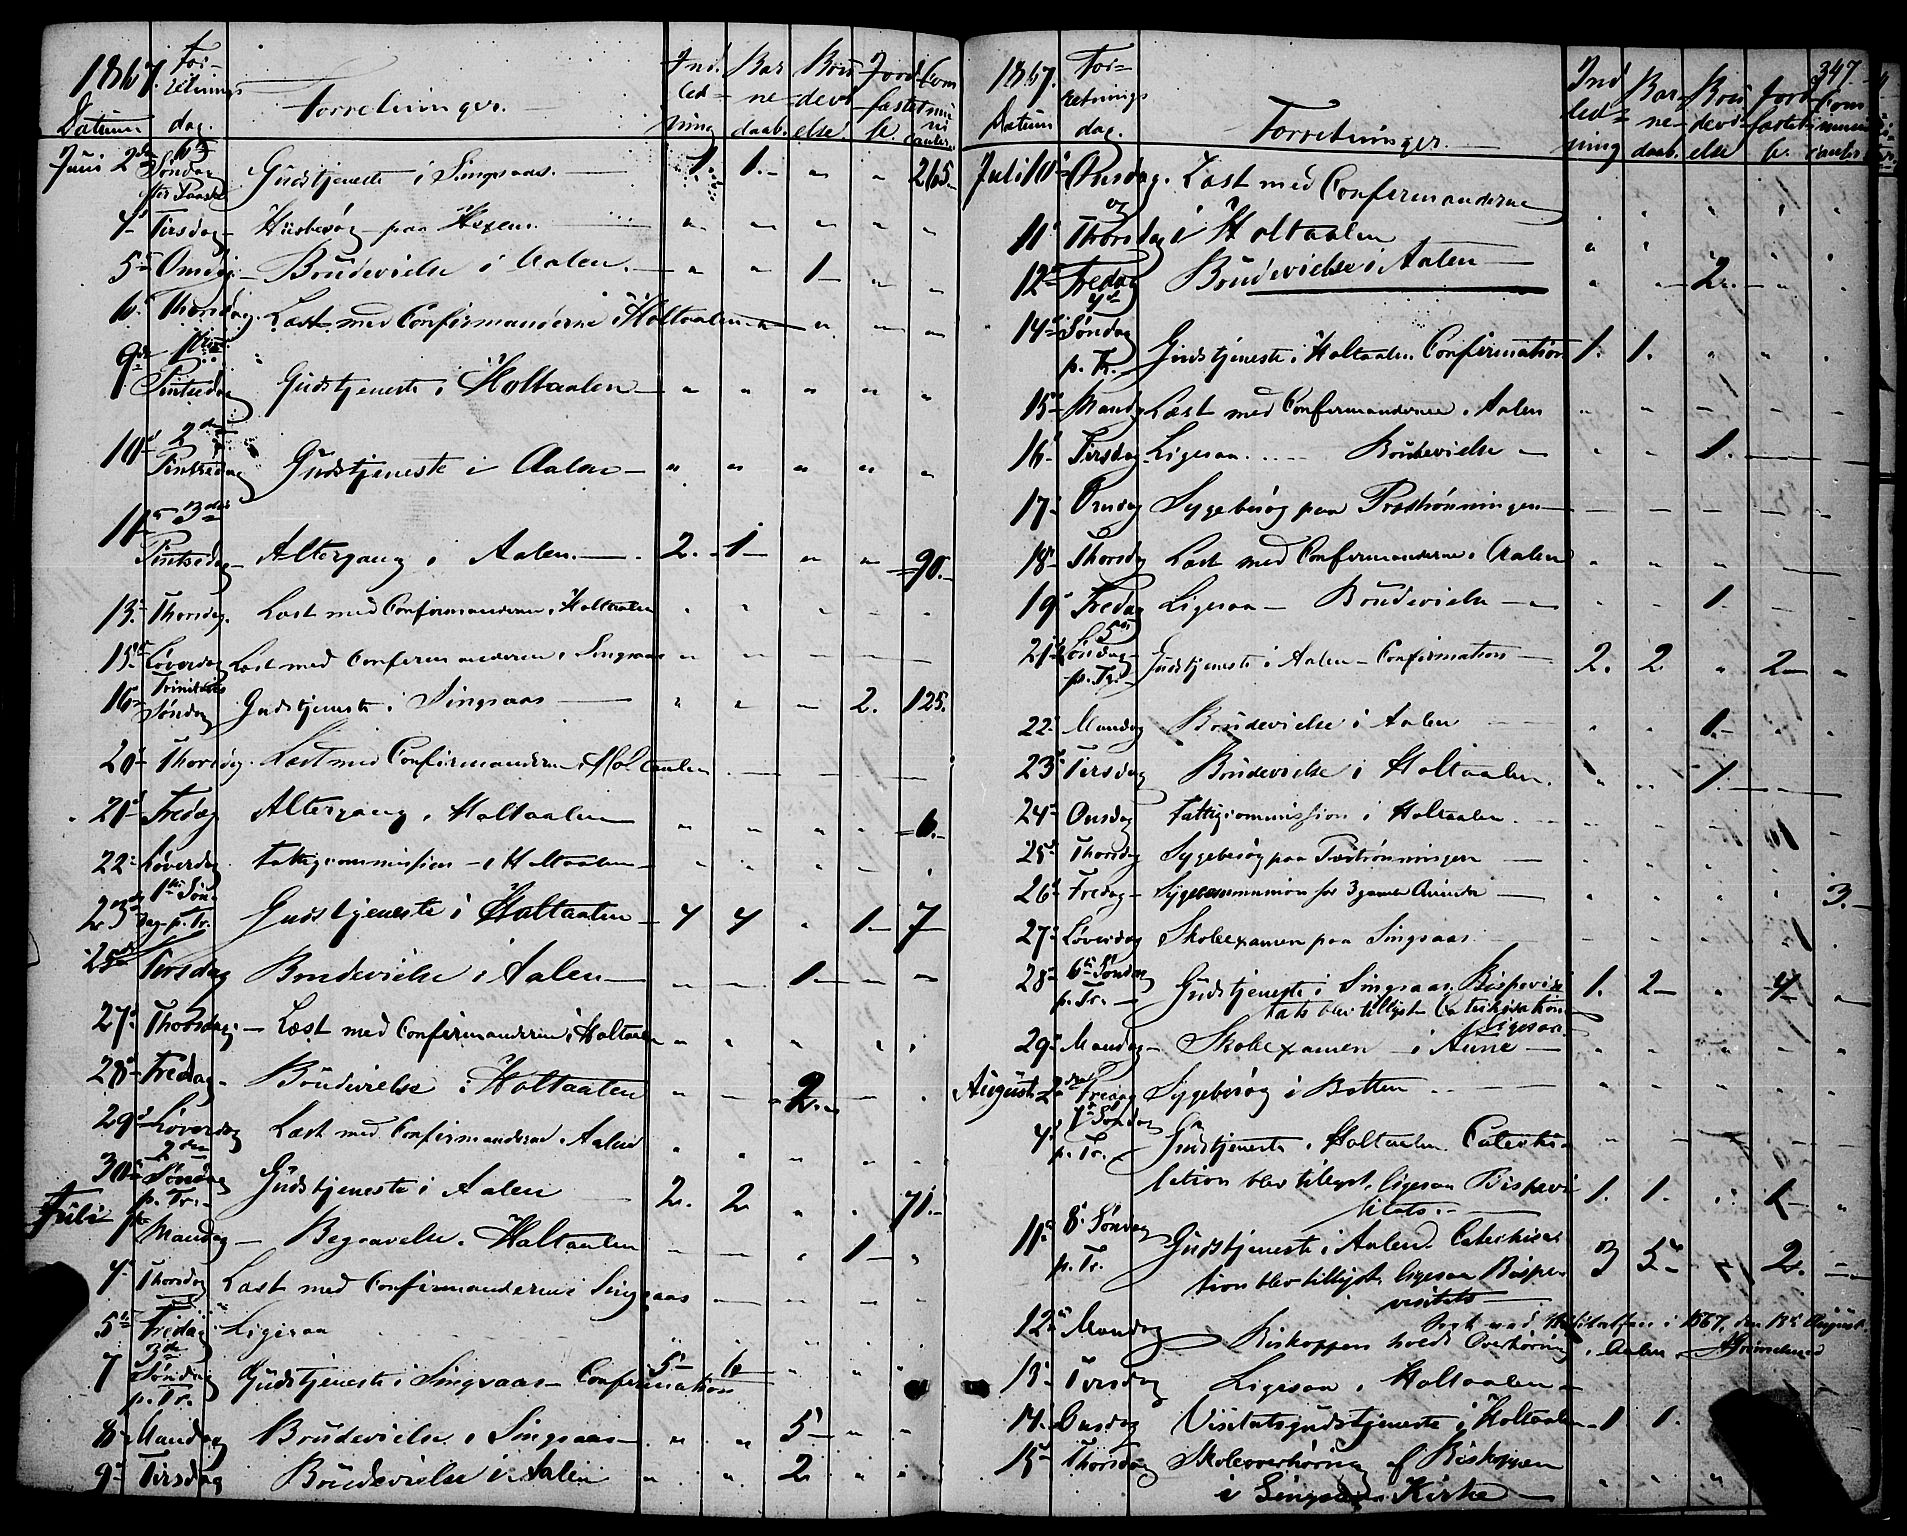 1867. For- Ind Bar Brü Jord Com
retnings Forretninger. led - ne- devi fæstel mu
Datum dag. ning daab. else se. ni
canter.
Juni 2de 6te
Søndag Gudstjeneste i Singsaas. 1. 1.- " " 265.-
fter Paaske
4- Tirsdag- Huusbesøg paa Hexem. " " " " "
5- Onsdag.- Brüdevielse i Aalen.- " " 1- " "
6- Thorsdag. Læst med Confirmanderne i Holtaalen " " " "
9de 1ste
Pintsedag Gudstjeneste i Holtaalen- " " " " "
10- 2den
Pintsedag Gudstjeneste i Aalen- " " " " "
11- 3die
Pintsedag- Altergang i Aalen.- 2.- 1- " " 90.-
13- Thorsdag. Læst med Confirmanderne i Holtaalen " " " " "
15- Løverdag Læst med Confirmanderne i Singsaas " " - - -
16- Trinitatis
Søndag Gudstjeneste i Singsaas - " " - 2. 125.
20- Thorsdag. Læst med Confirmanderne i Holtaalen - - - - -
21- Fredag Altergang i Holtaalen " " " " 6.-
22- Løverdag. Fattigcommission - i Holtaalen - " " " " "
23- 1ste Søn-
dag p. Tr. Gudstjeneste i Holtaalen- 4 4 " 1- 7-
25de Tirsdag Brudevielse i Aalen- - - 1- - -
27- Thorsdag.- Læst med Confirmanderne i Holtaalen " " " " "
28- Fredag- Brüdevielse i Holtaalen " - 2.- - "
29- Løverdag Læst med Confirmanderne i Aalen " " " " "
30- 2den
Søndag Gudstjeneste i Aalen - 2. 2 " " 71.-
p. Tr.-
Juli 1- Mandag- Begravelse i Holtaalen - - " 1- "
4- Thorsdag Læst med Confirmanderne i Singsaas - - " - "
5- Fredag Ligesaa " " " " "
7 3de
Søndag Gudstjeneste i Singsaas- Confirmation 5- 6 " " "
p. Tr.
8- Mandag Brüdevielse i Singsaas- " " 5- " "
9- Tirsdag Brüdevielse i Aalen " " 2 " "
347.
1867. For- Ind Bar- Brü Jord Com
retnings Forretninger. led- ne- devi- fæstel muni
Datum dag. ning daab. else se. canter
Juli 10- Onsdag. Læst med Confirmanderne " " " " "
og
11- Thorsdag i Holtaalen " "
12- Fredag Brüdevielse i Aalen- " - 2.- " "
14- 4de
Søndag
p. Tr. Gudstjeneste i Holtaalen Confirmation 1. 1. " " "
15- Mandg Læst med Confirmanderne i Aalen " - - - -
16- Tirsdag- Ligesaa.... Brüdevielse - " " 1. - -
17- Onsdag Sygebesøg paa - - - - -
18- Thorsdg Læst med Confirmanderne i Aalen " " " " -
19- Fredag Ligesaa- Brüdevielse - " - 1. - -
21- 5te
Søndag- Gudstjeneste i Aalen- Confirmation - 2. 2 " 2- "
p. Tr.-
22- Mandag Brüdevielse i Aalen - " " 1.- " "
23- Tirsdag Brüdevielse i Holtaalen. " " 1.- - -
24- Onsdag Fattigcommission i Holtaalen - " " " "
25- Thorsdag Sygebesøg paa - " " " " -
26- Fredag- Sygecommunion for 3 gamle Qvinder - " " " " 3.-
27- Løverdag Skoleexamen paa Singsaas - " " " "
28- 6te Søndag
p. Tr.- Gudstjeneste i Singsaas. Bispevisi 1. 2- " 4- "
tats blev tillyst Catechisation
Ligesaa
29- Mandag- Skoleexamen - i Aune - " " " " "
August 2den Fredag Sygebesøg i Botten " " " " "
4- 7de Søndag
p. Tr. Gudstjeneste i Holtaalen Catechi- - - - - -
sation blev tillyst, ligesaa Bispevi 1. 1. " 1- "
sitats.-
11- 8- Søndag
p. Tr. Gudstjeneste i Aalen. Catechisa- 3 5- " 2. -
tion blev tillyst, ligesaa Bispe-
visitats-
i 1867, den August.
12- Mandag Biskoppen holdt Overhøring i Aalen
13- Tirsdag Ligesaa i Holtaalen-
14. Onsdag Visitatsgudstjeneste i Holtaalen- 1. 1.
15- Thorsdag Skoleoverhøring af Biskoppen
i Singsaas Kirke - " " "